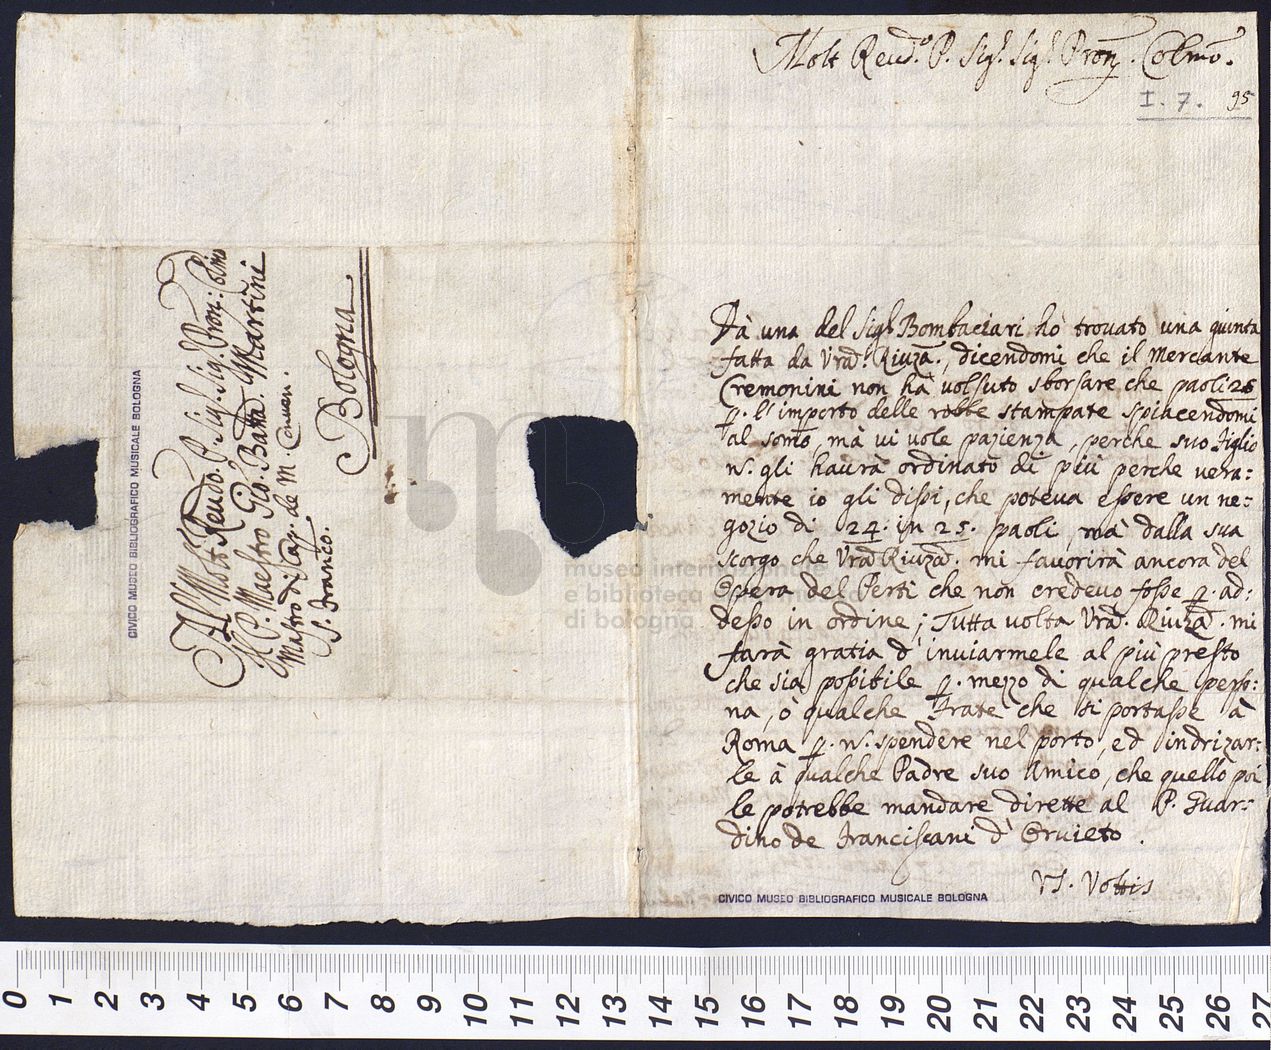 Molt Reud.º P. Sig.r Sig.r Pron. Colmo.
I. 7. 95
Dà una del Sig.r Bombaciari hò trouato una giunta
fatta da Vrad.r Riuza., dicendomi che il Mercante
Cremonini non hà uolsuto sborsare che paoli 26
p. l'importo delle robbe stampate spiacendomi
al somo, mà ui uole pazienza, perche suo Figlio
n. gli haurà ordinato di più perche uera:
mente io gli dissi, che poteua essere un ne:
gozio di 24. in 25. paoli, mà dalla sua
scorgo che Vrad Riuza. mi fauorirà ancora del
Opera del Perti che non credeuo fosse p. ad:
desso in ordine; Tutta uolta Vrad. Riuza. mi
farà gratia d'inuiarmele al più presto
che sia possibile p. mezzo di qualche perso:
na, ò qualche Frate che si portasse à
Roma p. n. spendere nel porto, ed indrizar:
le à qualche Padre suo Amico, che quello poi
le potrebbe mandare dirette al P. Guar:
diho de Franciscani d'Oruieto.
VS. Voltis
CIVICO MUSEO BIBLIOGRAFICO MUSICALE BOLOGNA
Al Molt Reudo. P. Sig.r Sig. Pron: Colmo
Il P. Maestro Gio. Batta. Martini
Mastro di Cap. de M. Conuen.
S. Franco.
Bologna
CIVICO MUSEO BIBLIOGRAFICO MUSICALE BOLOGNA
museo internazionale
e biblioteca della musica
di bologna
0 1 2 3 4 5 6 7 8 9 10 11 12 13 14 15 16 17 18 19 20 21 22 23 24 25 26 27